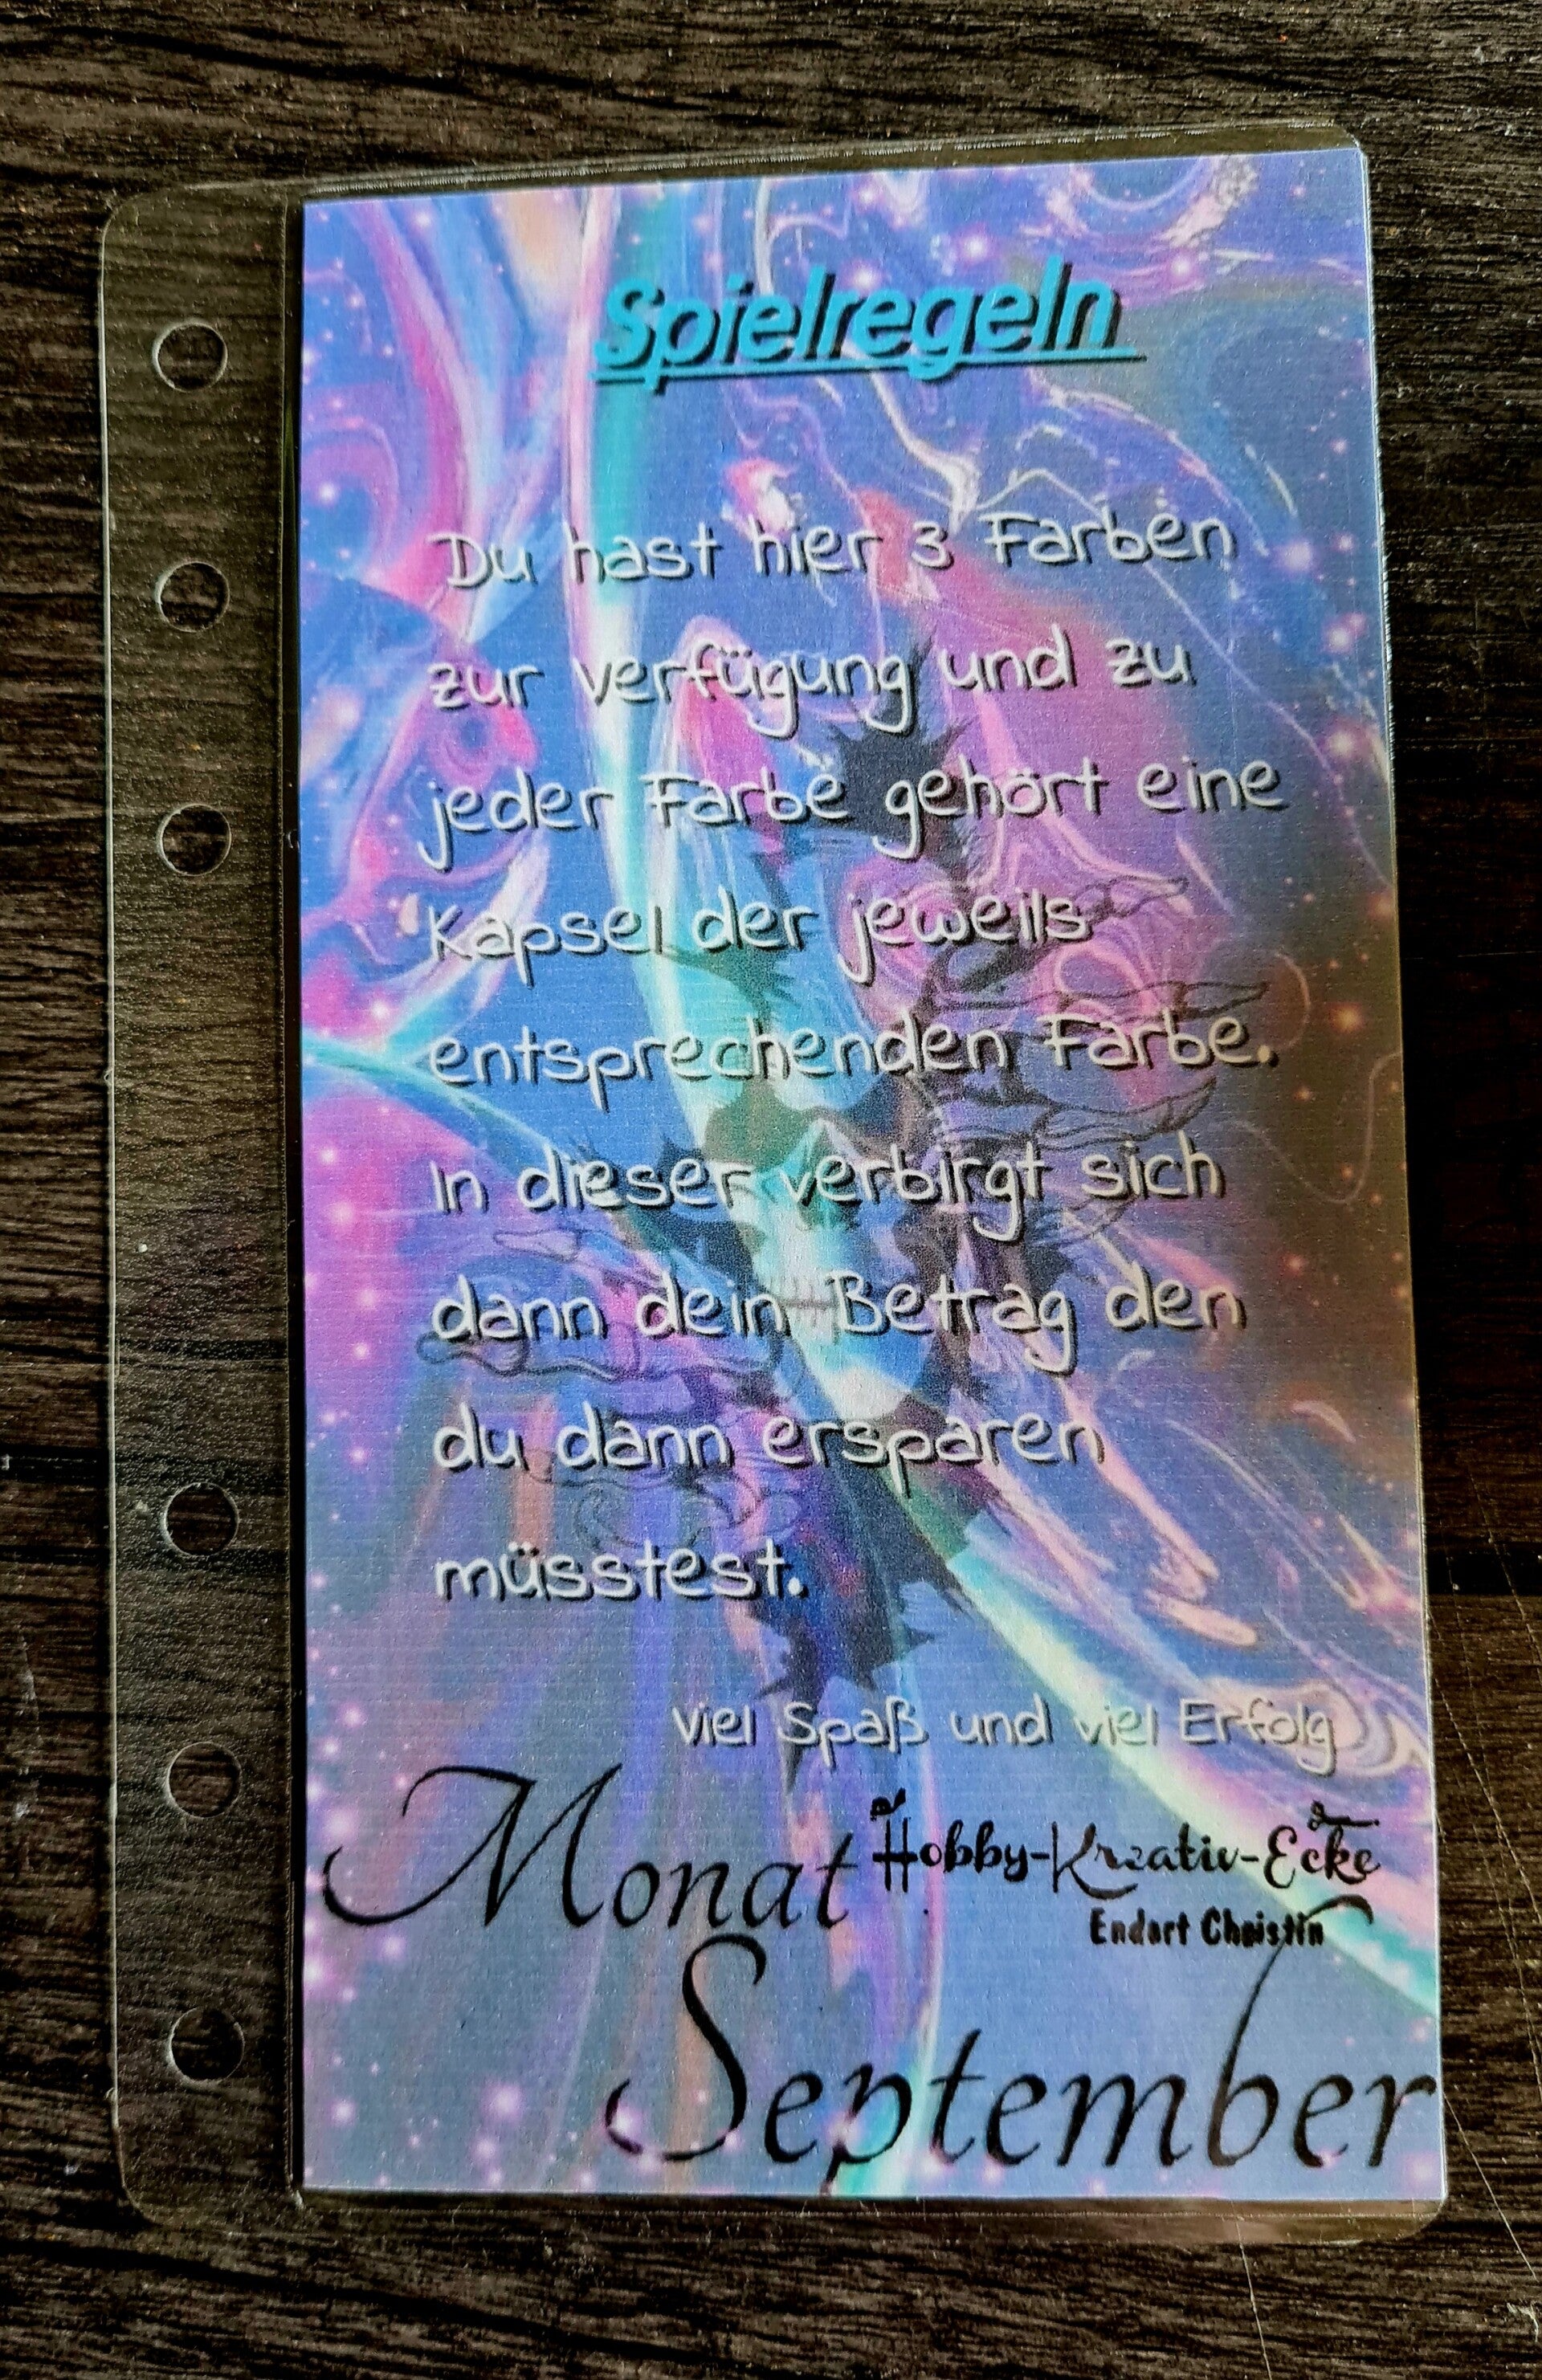 Spielregeln
Du hast hier 3 Farben
zur verfügung und zu
jeder Farbe gehört eine
Kapsel der jeweils
entsprechenden Farbe.
In dieser verbirgt sich
dann dein Betrag den
du dann ersparen
müsstest.
viel Spaß und viel Erfolg
Monat
Hobby-Kreativ-Ecke
Endart Christin
September